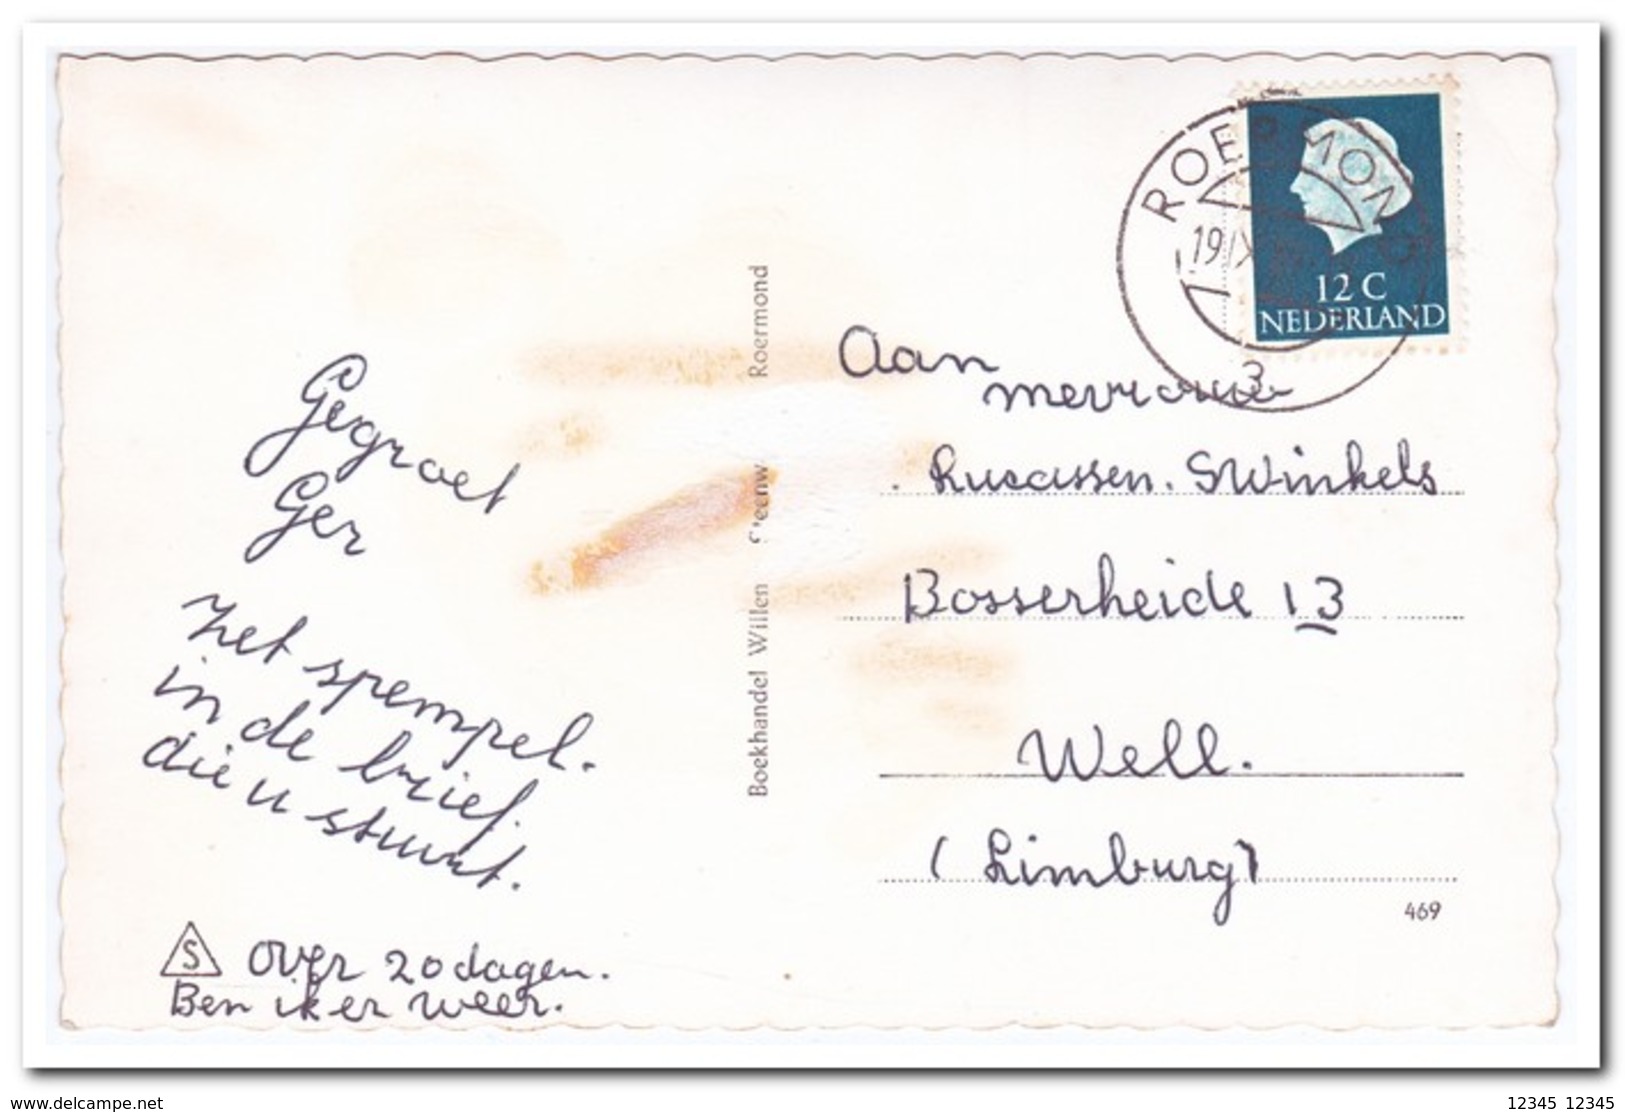 Gegroet
Ger
zet spempel.
in de brief.
die u stuurt.
S over 20 dagen.
Ben ik er weer.
Boekhandel Willen Roermond
ROERMOND
19 IX
3
12 C
NEDERLAND
Aan
mevrouw
Lucassen. Swinkels
Bosserheide 13
Well.
(Limburg)
469
www.delcampe.net
12345 12345